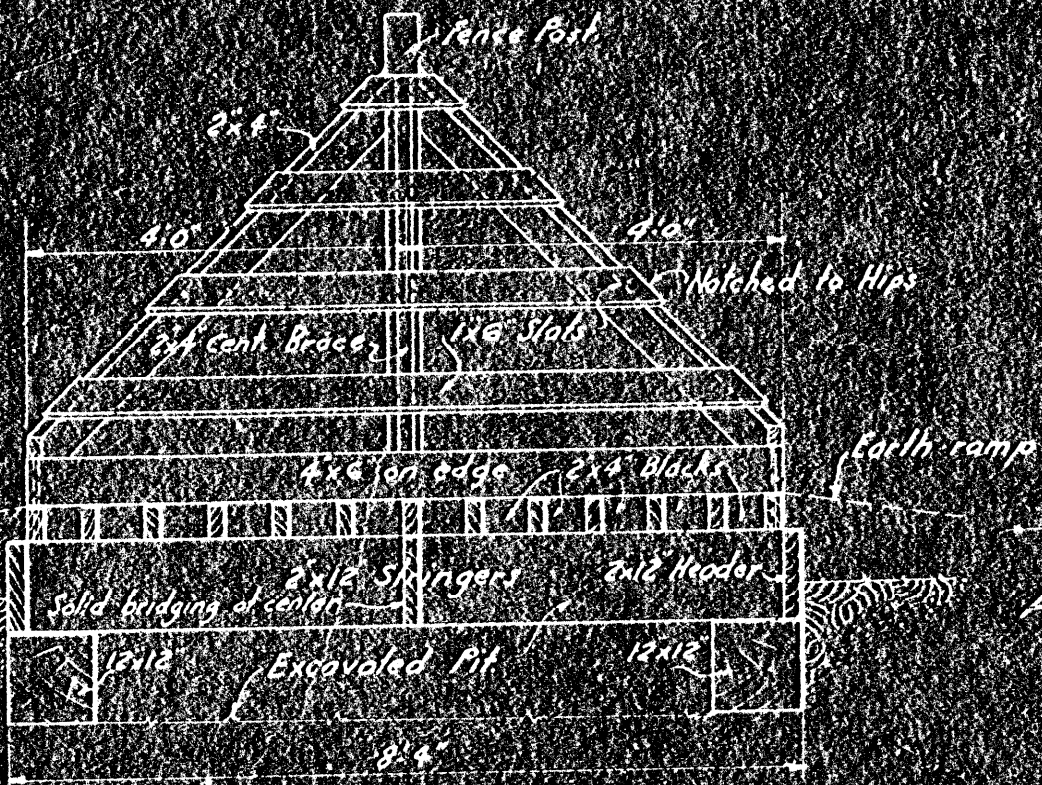 Fence Post.
2"x4"
4'0"
4'0"
Notched to Hips
2x4 Cent. Brace
1x6 Slats
Earth ramp
4"x6" on edge
2x4 Blocks
2"x12" Stringers
2x12 Header
Solid bridging at center
12x12"
Excavated Pit
12x12"
8'4"